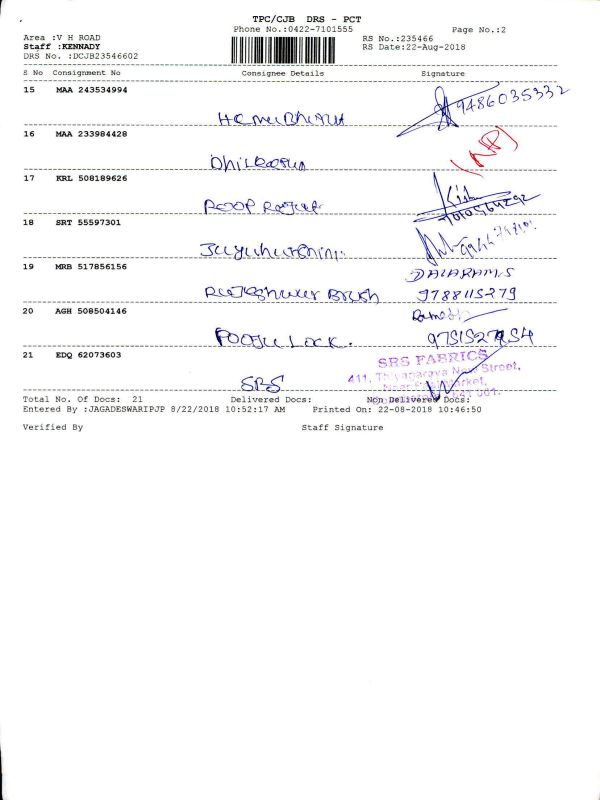 TPC/CJB DRS - PCT
Phone No.:0422-7101555 Page No.:2
Area :V H ROAD RS No.:235466
Staff :KENNADY RS Date:22-Aug-2018
DRS No. :DCJB23546602
S No Consignment No Consignee Details Signature
15 MAA 243534994
9486035332
16 MAA 233984428
17 KRL 508189626
ROOP
18 SRT 55597301
19 MRB 517856156 DALARAM.S
Rajeshwar Brush 9788115279
20 AGH 508504146 Ramesh
POOJA LOCK.
21 EDQ 62073603 SRS FABRICS
411, Thiyagaraya New Street,
SRS
Total No. Of Docs: 21 Delivered Docs: Non Delivered Docs:
Entered By :JAGADESWARIPJP 8/22/2018 10:52:17 AM Printed On: 22-08-2018 10:46:50
Verified By Staff Signature